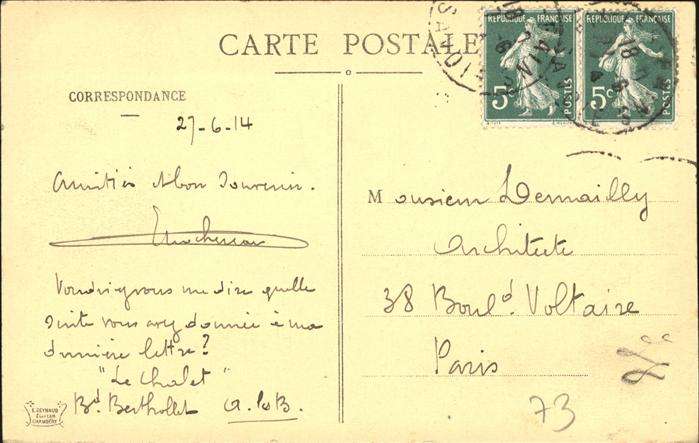 CARTE POSTALE
RÉPUBLIQUE FRANÇAISE
5c
POSTES
RÉPUBLIQUE FRANÇAISE
5c
POSTES
CORRESPONDANCE
27-6-14
Amitiés & bon Souvenir.
Voudriez vous me dire quelle
suite vous avez donnée à ma
dernière lettre?
"Le Chalet"
Bd Berthollet
Monsieur Demailly
Architecte
38 Bould Voltaire
Paris
73
E. REYNAUD
EDITEUR
CHAMBÉRY